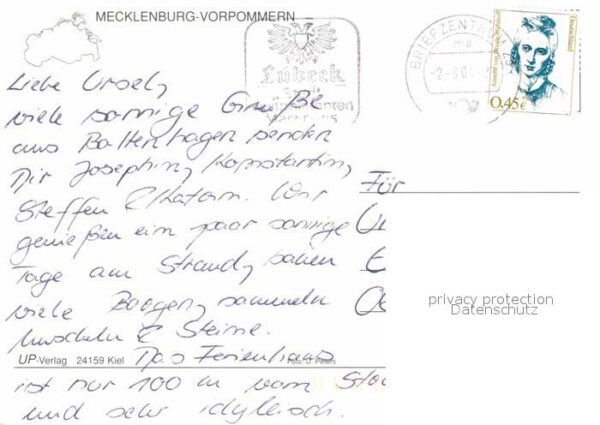 MECKLENBURG-VORPOMMERN
Lübeck
BRIEFZENTRUM
0,45€
Deutschland
Liebe Ursel,
viele sonnige Grüße
aus Boltenhagen senden
Dir Josephin, Konstantin,
Steffen & Katrin. Wir
genießen ein paar sonnige
Tage am Strand, bauen
viele Burgen, sammeln
Muscheln & Steine.
Das Ferienhaus
ist nur 100 m vom
und sehr idyllisch.
Für
privacy protection
Datenschutz
UP-Verlag 24159 Kiel
Foto: U. Peters